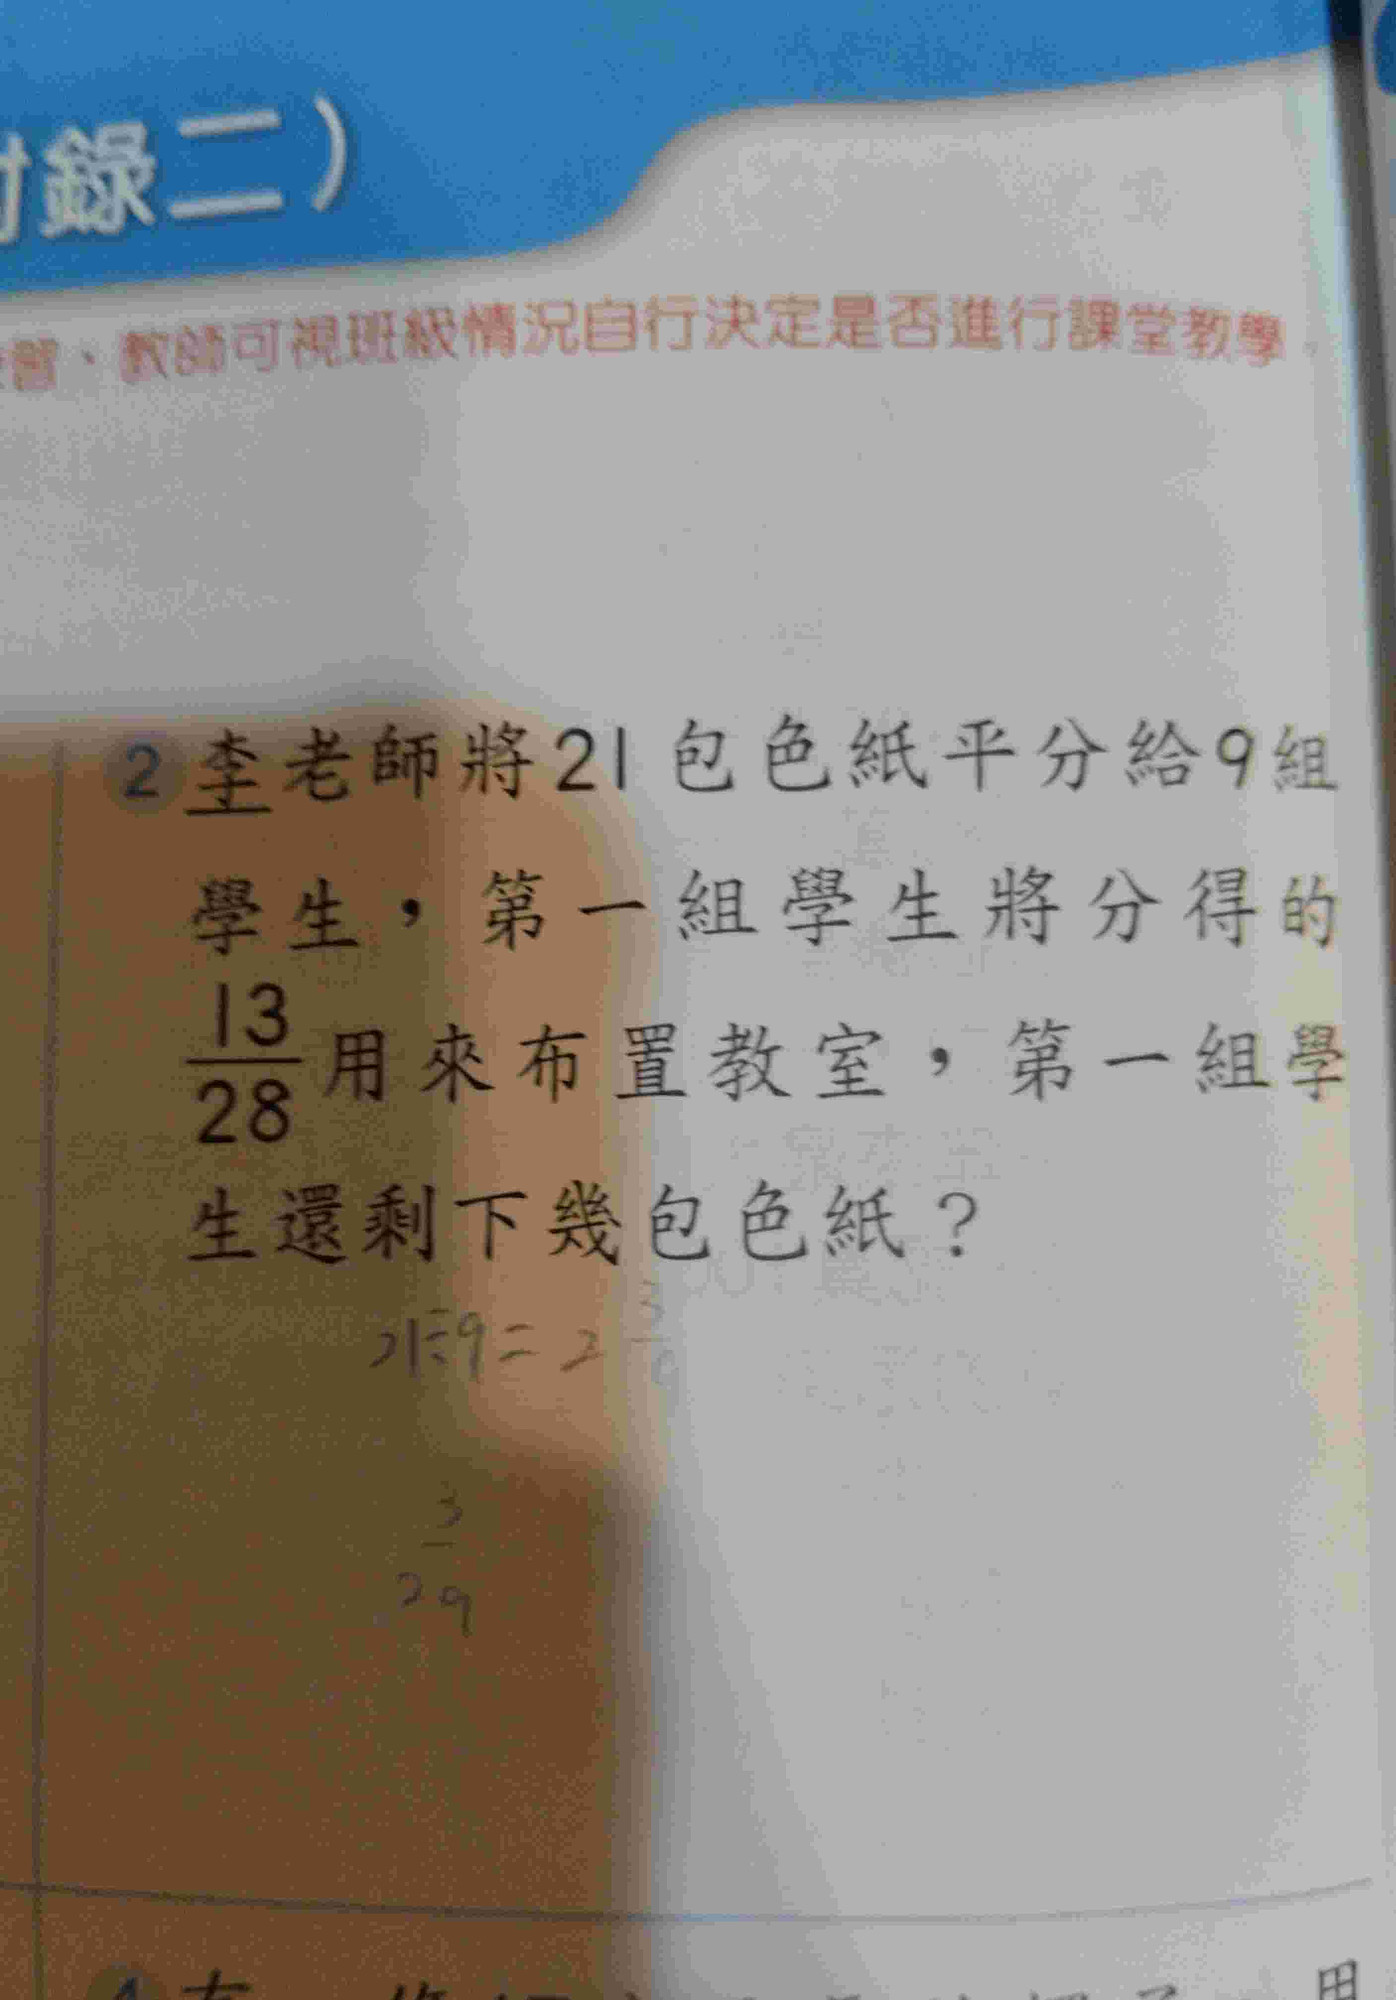 錄二）
、教師可視班級情況自行決定是否進行課堂教學
2 李老師將21包色紙平分給9組
學生，第一組學生將分得的
13
28
用來布置教室，第一組學
生還剩下幾包色紙？
21÷9=2 3
3
29